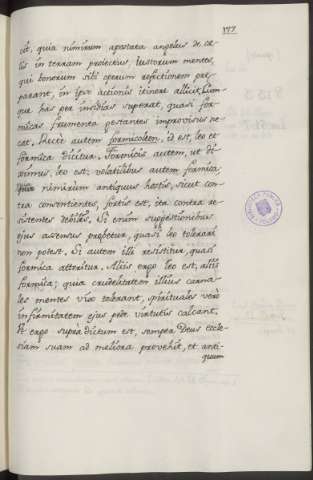 177
cit, quia nimirum apostata angelus de cæ-
lis in terram proiectus, iustorum mentes,
qui bonorum sibi operum refectionem præ-
parant, in ipso actionis itinere allicit. Cum-
que has per insidias superat, quasi for-
micas frumenta gestantes improvisus ne-
cat, recte autem formicoleon, id est, leo et
formica dicitur. Formicis autem, ut di-
ximus, leo est; volatilibus autem formica;
quia nimirum antiquus hostis, sicut con-
tra consentientes, fortis est, ita contra re-
sistentes debilis. Si enim suggestionibus
ejus assensus præbetur, quasi leo tolerari
non potest. Si autem illi resistitur, quasi
formica atteritur. Aliis ergo leo est, aliis
formica; quia crudelitatem illius carna-
les mentes vix tolerant, spirituales vero
infirmitatem ejus pede virtutis calcant.
Ut ergo supra dictum est, semper Deus eccle-
siam suam ad meliora provehit, et anti-
quum